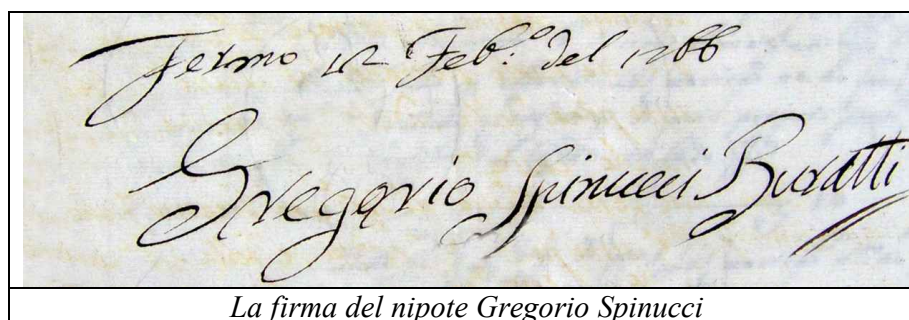 Fermo 12 Feb:º del 1766
Gregorio Spinucci Buratti
La firma del nipote Gregorio Spinucci